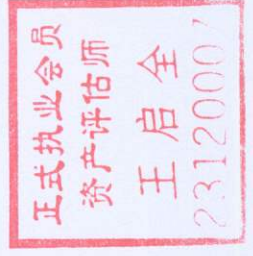 正式执业会员
资产评估师
王启全
23120007